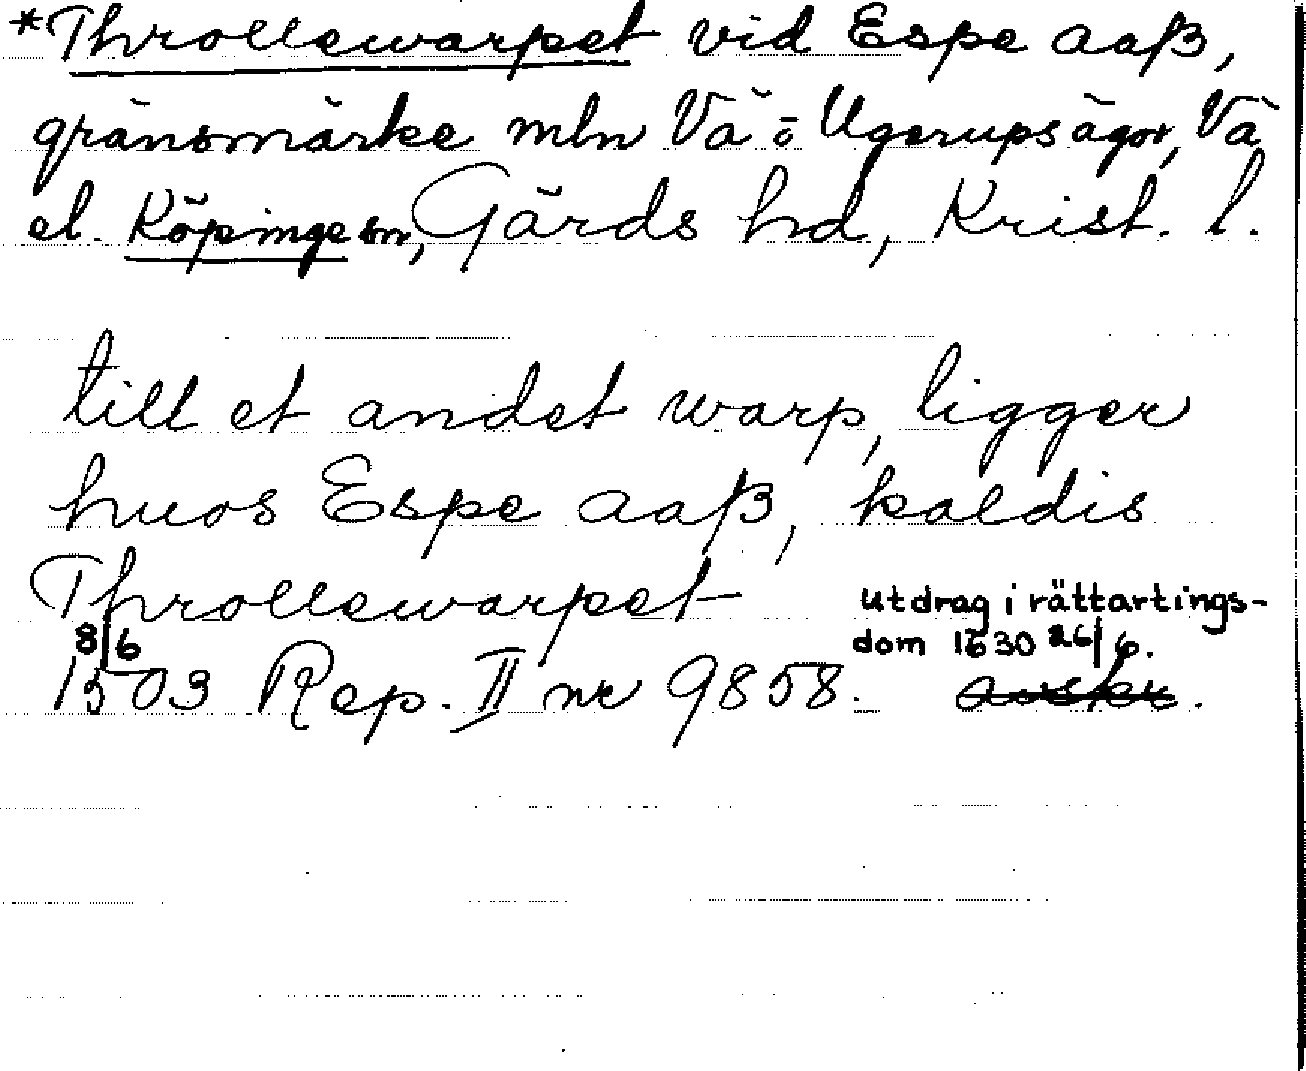 *Throllewarpet vid Espe aaß,
gränsmärke mln Vä o Ugerups ägor, Vä
el. Köpinge sn, Gärds hd, Krist. l.
till et andet warp, ligger
huos Espe aaß, kaldis
Throllewarpet
utdrag i rättartings-
dom 1630 26/6.
8/6
1503 Rep. II nr 9858. avskr.